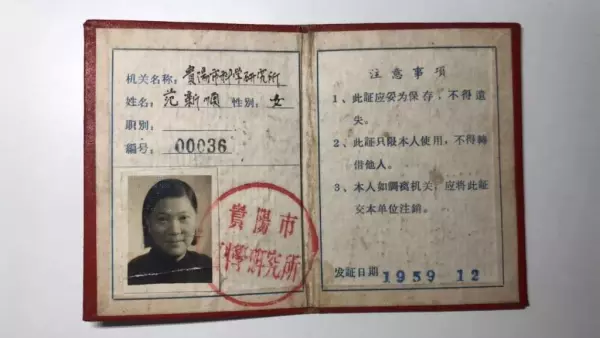 机关名称：貴陽市科学研究所
姓名：范新順 性别：女
职别：
編号：00036
貴陽市
科學研究所
注意事項
1、此証应妥为保存，不得遺
失。
2、此証只限本人使用，不得轉
借他人。
3、本人如調离机关，应将此証
交本单位注銷。
发証日期 1959 12